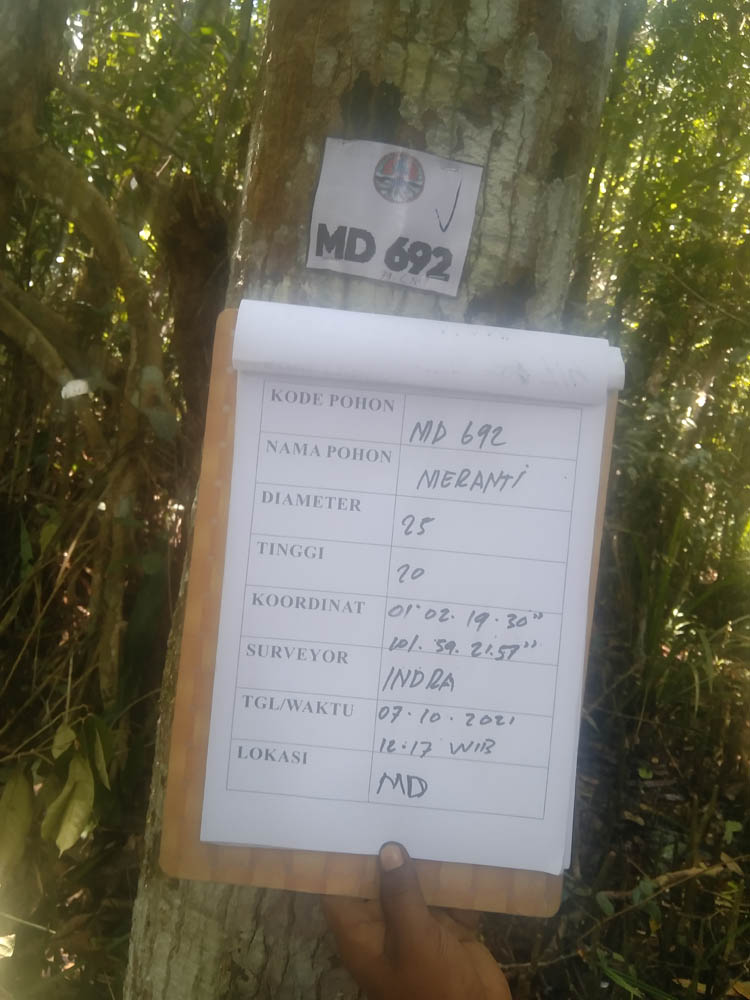 MD 692
KODE POHON MD 692
NAMA POHON MERANTI
DIAMETER 25
TINGGI 20
KOORDINAT 01° 02. 19. 30"
101. 59. 21.57"
SURVEYOR INDRA
TGL/WAKTU 07. 10. 2021
12:17 WIB
LOKASI MD